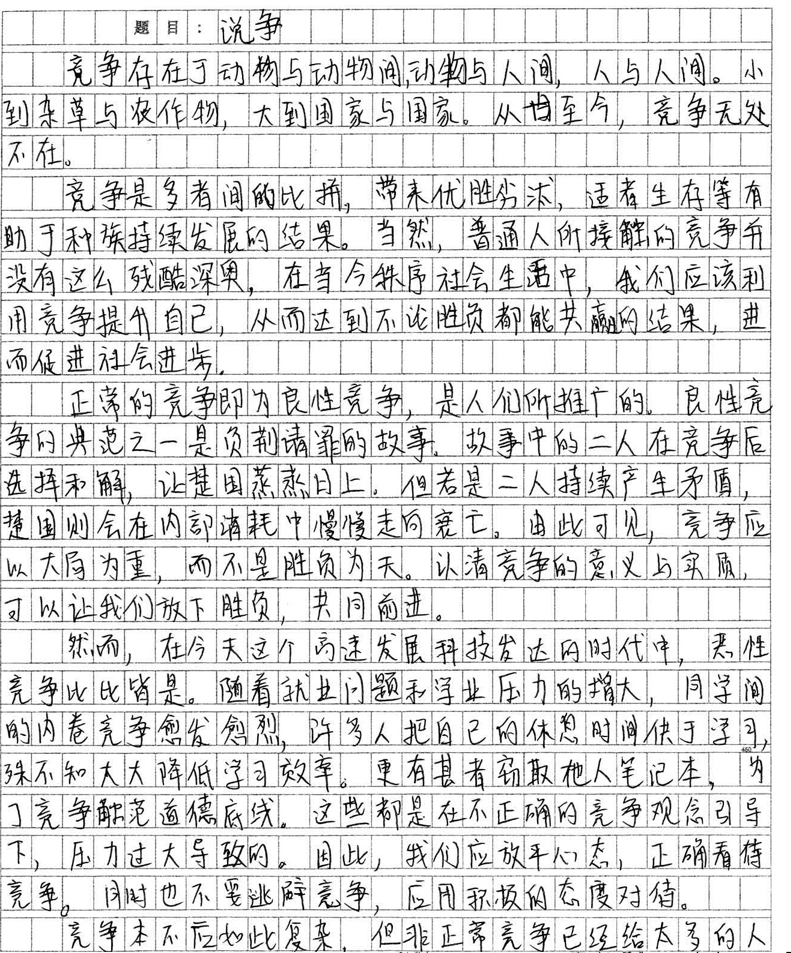 题目：说争
竞争存在于动物与动物间,动物与人间，人与人间。小
到杂草与农作物，大到国家与国家。从古至今，竞争无处
不在。
竞争是多者间的比拼，带来优胜劣汰，适者生存等有
助于种族持续发展的结果。当然，普通人所接触的竞争并
没有这么残酷深奥，在当今秩序社会生活中，我们应该利
用竞争提升自己，从而达到不论胜负都能共赢的结果，进
而促进社会进步.
正常的竞争即为良性竞争，是人们所推广的。良性竞
争的典范之一是负荆请罪的故事。故事中的二人在竞争后
选择和解，让楚国蒸蒸日上。但若是二人持续产生矛盾，
楚国则会在内部消耗中慢慢走向衰亡。由此可见，竞争应
以大局为重，而不是胜负为天。认清竞争的意义与实质，
可以让我们放下胜负，共同前进。
然而，在今天这个高速发展科技发达的时代中，恶性
竞争比比皆是。随着就业问题和学业压力的增大，同学间
的内卷竞争愈发愈烈，许多人把自己的休息时间供于学习，
殊不知大大降低学习效率。更有甚者窃取他人笔记本，为
了竞争触范道德底线。这些都是在不正确的竞争观念引导
下，压力过大导致的。因此，我们应放平心态，正确看待
竞争。同时也不要逃避竞争，应用积极的态度对待。
竞争本不应如此复杂，但非正常竞争已经给太多的人